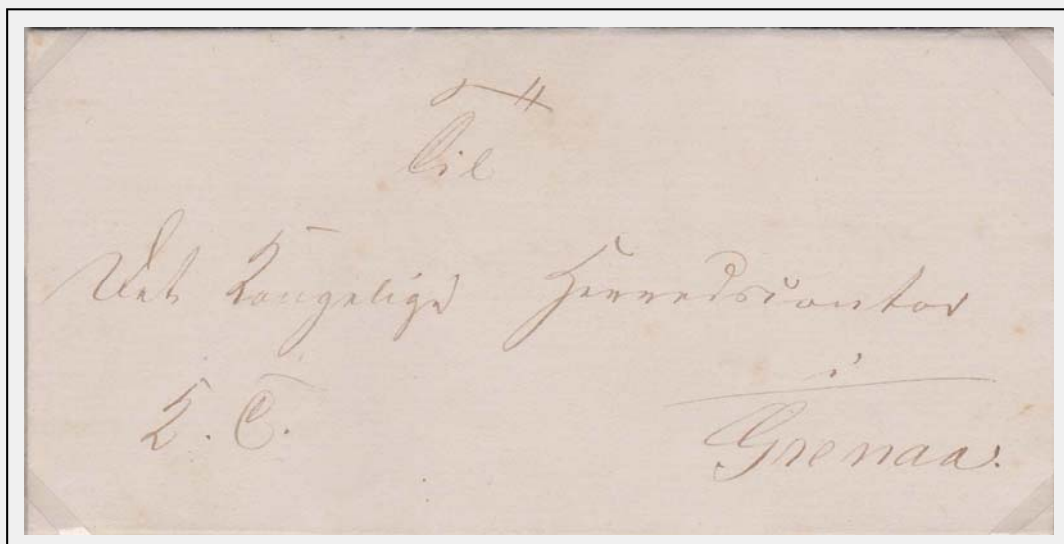 Til
Det Kongelige Herredscontor
i
K. T. Grenaa.